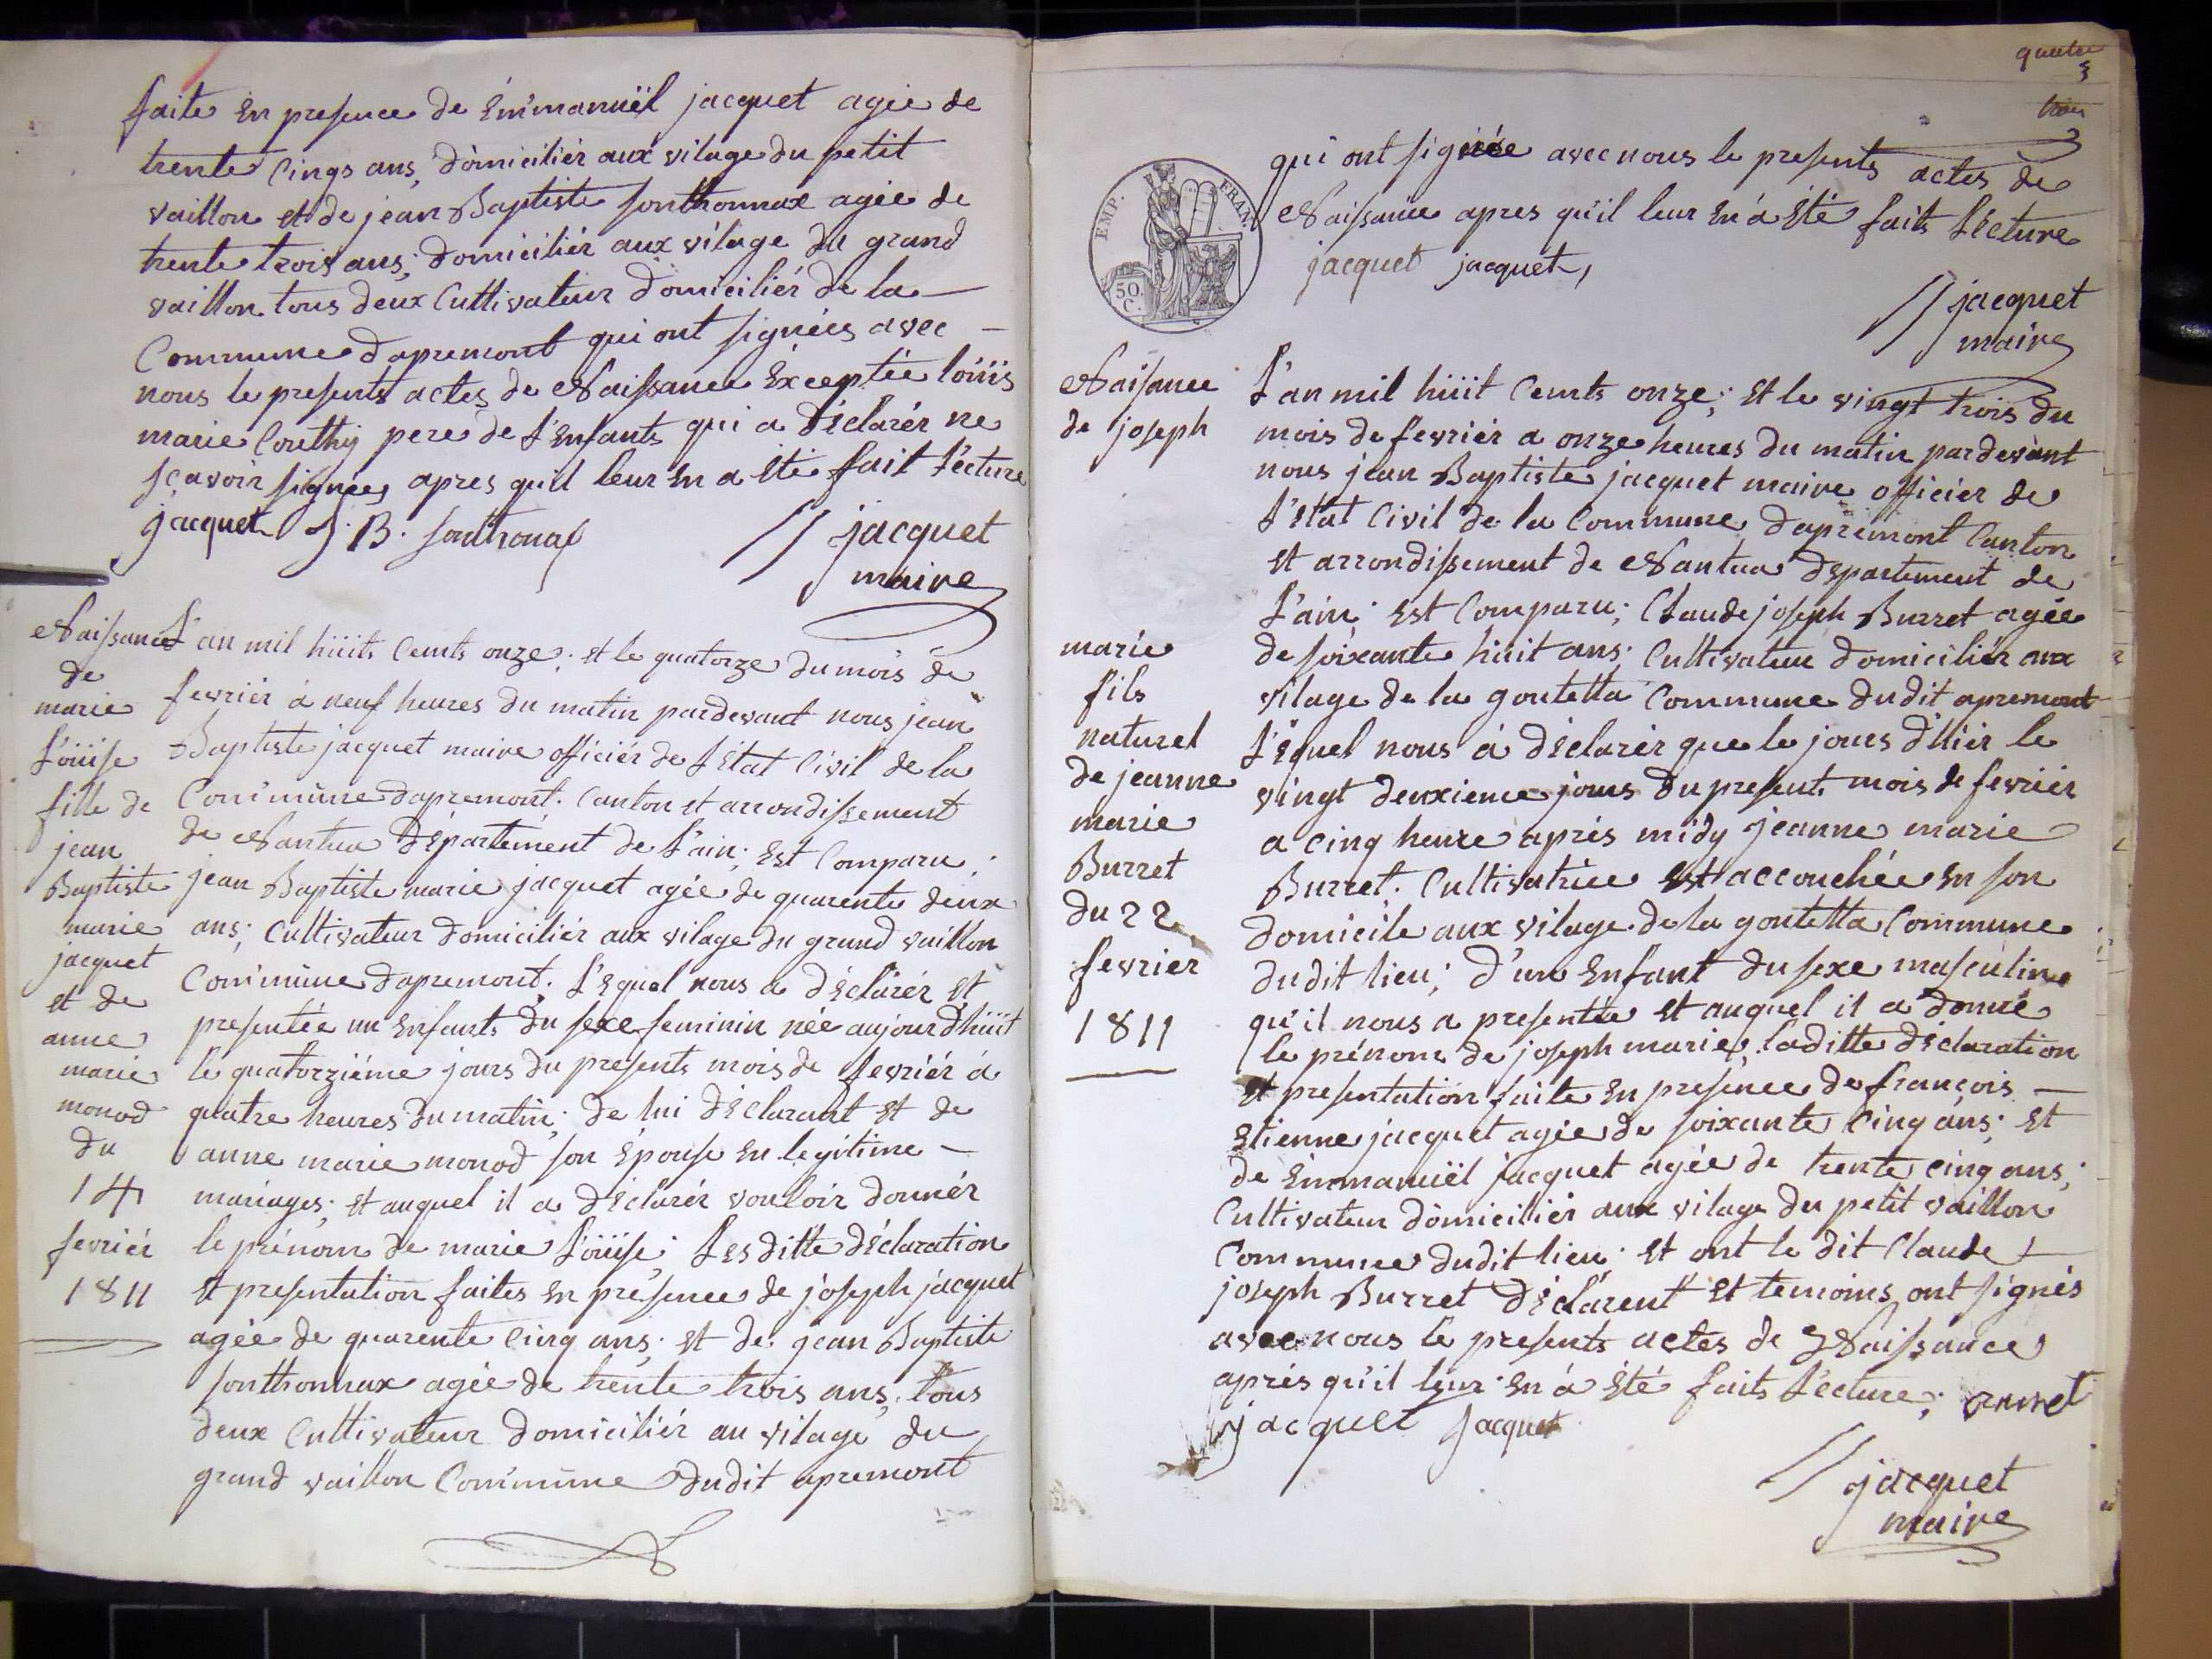 faite En presence de Emmanuël jacquet agée de
trente Cinqs ans, domiciliér aux vilage du petit
vaillon et de jean Baptiste sonthonnax agée de
trente trois ans; domiciliér aux vilage du grand
vaillon tous deux Cultivateur domiciliér de la
Commune dapremont qui ont signées avec
nous le presents actes de Naissance Exceptée loüis
marie Couthy pere de L'Enfants qui a déclarér ne
sçavoir signées, apres quil leur En a Eté fait Lecture
jacquet J. B. sonthonax
jacquet
maire
Naissance
de
marie
Loüise
fille de
jean
Baptiste
marie
jacquet
et de
anne
marie
monod
du
14
fevriér
1811
L'an mil hüits Cents onze; et le quatorze du mois de
fevriér à neuf heures du matin pardevant nous jean
Baptiste jacquet maire officiér de L'état Civil de la
Commune dapremont. Canton et arrondissement
de Nantua Département de L'ain; Est Comparu;
jean Baptiste marie jacquet agée de quarente deux
ans; Cultivateur domiciliér aux vilage du grand vaillon
Commune dapremont. L'Equel nous a déclarér et
presentée un Enfants du sexe feminin née aujourd'hüit
le quatorziéme jours du presents mois de fevriér à
quatre heures du matin; de lui déclarant et de
anne marie monod son Epouse En legitime
mariages; et auquel il a déclarér vouloir donnér
le prénom de marie Loüise; Lesditte déclaration
et presentation faites En présence de joseph jacquet
agée de quarente Cinq ans; et de jean Baptiste
sonthonnax agée de trente trois ans, tous
deux Cultivateur domiciliér au vilage du
grand vaillon Commune dudit apremont
quatre
trois
EMP. FRAN.
50.
C.
qui ont signée avec nous le presents actes de
Naissance apres qu'il leur En á Eté faits Lecture
jacquet jacquet,
jacquet
maire
Naisance
de joseph
marie
fils
naturel
de jeanne
marie
Burret
du 22
fevrier
1811
L'an mil hüit Cents onze; Et le vingt trois du
mois de fevriér a onze heures du matin pardevant
nous jean Baptiste jacquet maire officiér de
L'etat Civil de la Commune dapremont Canton
et arrondissement de Nantua Département de
L'ain; Est Comparu; Claude joseph Burret agée
de soixante hüit ans; Cultivateur domiciliér aux
vilage de la goutetta Commune dudit apremont
L'Equel nous à déclarér que le jours d'hiér le
vingt deuxieme jours du present mois de fevriér
a cinq heure aprés midy jeanne marie
Burret. Cultivatrice Est accouchée En son
domicile aux vilage de la goutetta Commune
dudit lieu; d'un Enfant du sexe masculine
qu'il nous a presentée et auquel il a donné
le prénom de joseph marie; laditte déclaration
et presentation faite En presence de françois
Etienne jacquet agée de soixante Cinq ans; Et
de Emmanuël jacquet agée de trente cinq ans;
Cultivateur domiciliér aux vilage du petit vaillon
Commune dudit lieu; et ont le dit Claude
joseph Burret déclarent et temoins ont signés
avec nous le presents actes de Naissance
aprés qu'il leur En á Eté faits Lecture; Burret
jacquet jacquet
jacquet
maire